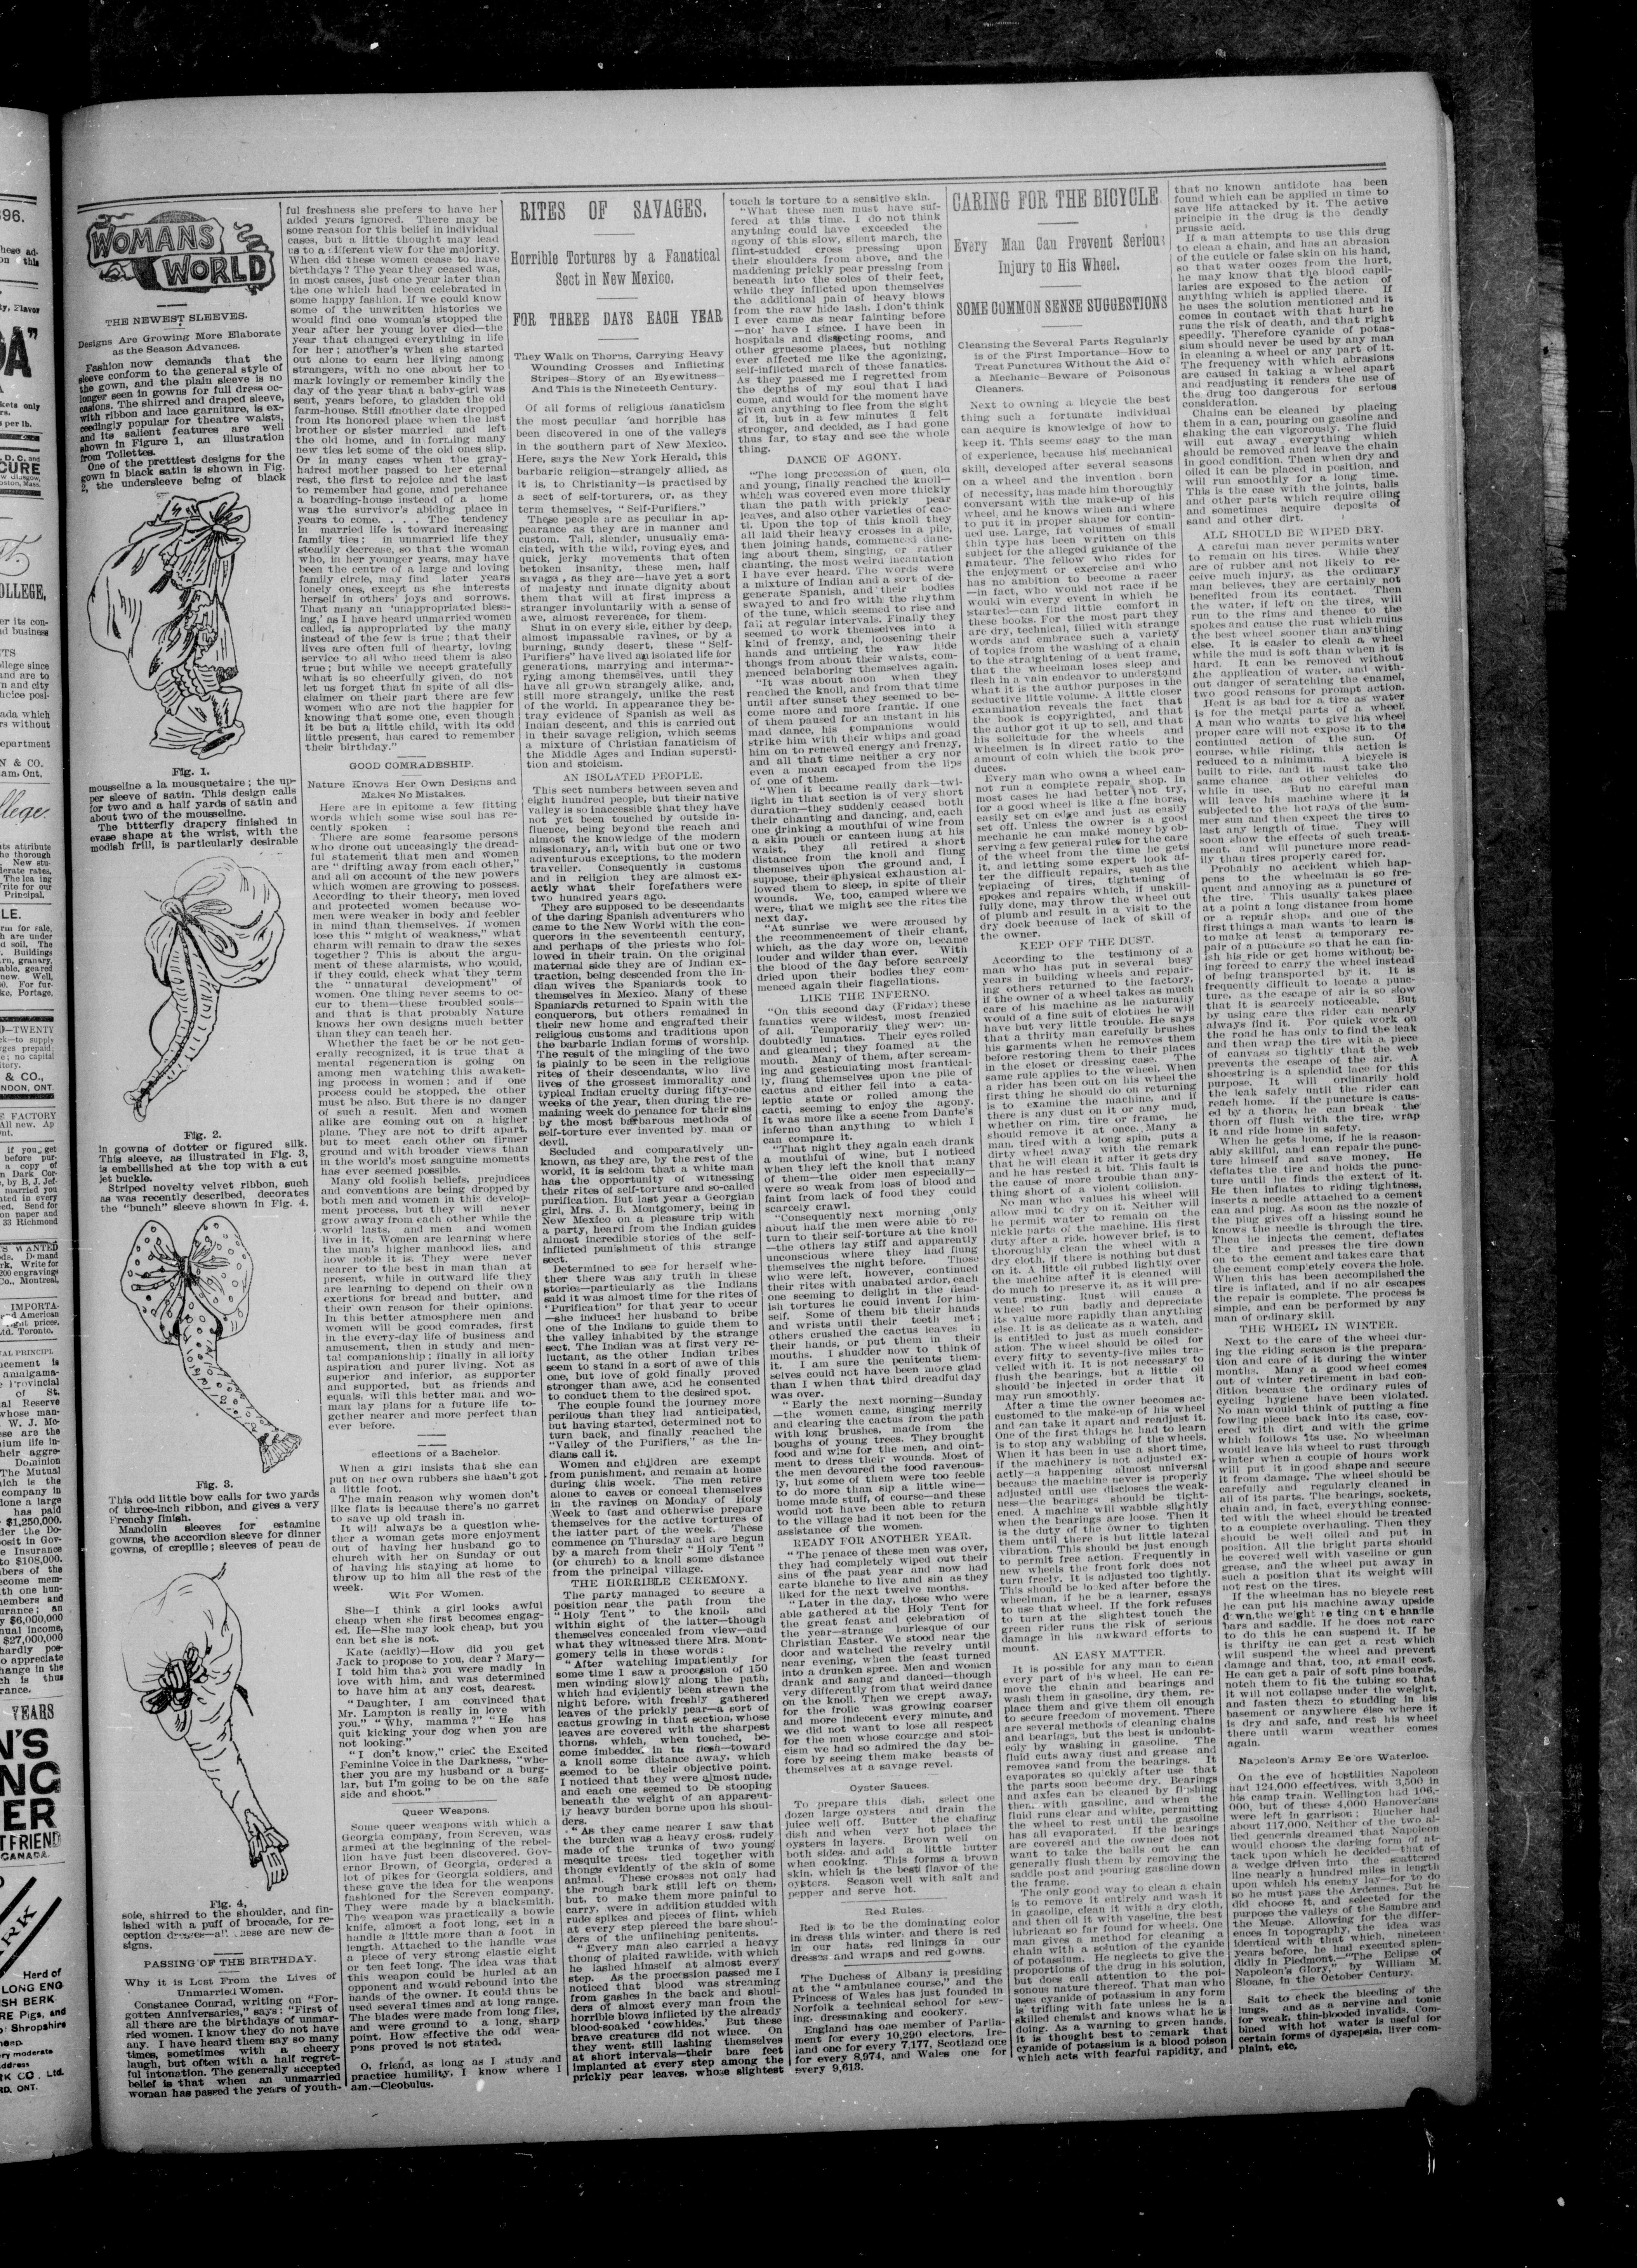 WOMANS
WORLD
THE NEWEST SLEEVES.
Designs Are Growing More Elaborate
as the Season Advances.
Fashion now demands that the
sleeve conform to the general style of
the gown, and the plain sleeve is no
longer seen in gowns for full dress oc-
casions. The shirred and draped sleeve,
with ribbon and lace garniture, is ex-
ceedingly popular for theatre waists,
and its salient features are well
shown in Figure 1, an illustration
from Toilettes.
One of the prettiest designs for the
gown in black satin is shown in Fig.
2, the undersleeve being of black
Fig. 1.
mousseline a la mousquetaire; the up-
per sleeve of satin. This design calls
for two and a half yards of satin and
about two of the mousseline.
The bttterfly drapery finished in
evase shape at the wrist, with the
modish frill, is particularly desirable
Fig. 2.
in gowns of dotter or figured silk.
This sleeve, as illustrated in Fig. 3,
is embellished at the top with a cut
jet buckle.
Striped novelty velvet ribbon, such
as was recently described, decorates
the "bunch" sleeve shown in Fig. 4.
Fig. 3.
This odd little bow calls for two yards
of three-inch ribbon, and gives a very
Frenchy finish.
Mandolin sleeves for estamine
gowns, the accordion sleeve for dinner
gowns, of crepille; sleeves of peau de
Fig. 4,
soie, shirred to the shoulder, and fin-
ished with a puff of brocade, for re-
ception dresses—all these are new de-
signs.
PASSING OF THE BIRTHDAY.
Why it is Lost From the Lives of
Unmarried Women.
Constance Conrad, writing on "For-
gotten Anniversaries," says: "First of
all there are the birthdays of unmar-
ried women. I know they do not have
any. I have heard them say so many
times, sometimes with a cheery
laugh, but often with a half regret-
ful intonation. The generally accepted
belief is that when an unmarried
woman has passed the years of youth-
ful freshness she prefers to have her
added years ignored. There may be
some reason for this belief in individual
cases, but a little thought may lead
us to a different view for the majority.
When did these women cease to have
birthdays? The year they ceased was,
in most cases, just one year later than
the one which had been celebrated in
some happy fashion. If we could know
some of the unwritten histories we
would find one woman's stopped the
year after her young lover died—the
year that changed everything in life
for her; another's when she started
out alone to earn her living among
strangers, with no one about her to
mark lovingly or remember kindly the
day of the year that a baby-girl was
sent, years before, to gladden the old
farm-house. Still another date dropped
from its honored place when the last
brother or sister married and left
the old home, and in forming many
new ties let some of the old ones slip.
Or in many cases when the gray-
haired mother passed to her eternal
rest, the first to rejoice and the last
to remember had gone, and perchance
a boarding-house instead of a home
was the survivor's abiding place in
years to come. . . . The tendency
in married life is toward increasing
family ties; in unmarried life they
steadily decrease, so that the woman
who, in her younger years, may have
been the centre of a large and loving
family circle, may find later years
lonely ones, except as she interests
herself in others' joys and sorrows.
That many an 'unappropriated bless-
ing,' as I have heard unmarried women
called, is appropriated by the many
instead of the few is true; that their
lives are often full of hearty, loving
service to all who need them is also
true; but while we accept gratefully
what is so cheerfully given, do not
let us forget that in spite of all dis-
claimer on their part there are few
women who are not the happier for
knowing that some one, even though
it be but a little child, with its odd
little present, has cared to remember
their birthday."
GOOD COMRADESHIP.
Nature Knows Her Own Designs and
Makes No Mistakes.
Here are in epitome a few fitting
words which some wise soul has re-
cently spoken :
There are some fearsome persons
who drone out unceasingly the dread-
ful statement that men and women
are "drifting away from each other,"
and all on account of the new powers
which women are growing to possess.
According to their theory, men loved
and protected women because wo-
men were weaker in body and feebler
in mind than themselves. If women
lose this "might of weakness," what
charm will remain to draw the sexes
together? This is about the argu-
ment of these alarmists, who would,
if they could, check what they term
the "unnatural development" of
women. One thing never seems to oc-
cur to them—these troubled souls—
and that is that probably Nature
knows her own designs much better
than they can teach her.
Whether the fact be or be not gen-
erally recognized, it is true that a
mental regeneration is going on
among men watching this awaken-
ing process in women; and if one
process could be stopped, the other
must be also. But there is no danger
of such a result. Men and women
alike are coming out on a higher
plane. They are not to drift apart,
but to meet each other on firmer
ground and with broader views than
in the world's most sanguine moments
has ever seemed possible.
Many old foolish beliefs, prejudices
and conventions are being dropped by
both men and women in this develop-
ment process, but they will never
grow away from each other while the
world lasts, and men and women
live in it. Women are learning where
the man's higher manhood lies, and
how noble it is. They were never
nearer to the best in man than at
present, while in outward life they
are learning to depend on their own
exertions for bread and butter, and
their own reason for their opinions.
In this better atmosphere men and
women will be good comrades, first
in the every-day life of business and
amusement, then in study and men-
tal companionship; finally in all lofty
aspiration and purer living. Not as
superior and inferior, as supporter
and supported, but as friends and
equals, will this better man and wo-
man lay plans for a future life to-
gether nearer and more perfect than
ever before.
eflections of a Bachelor.
When a girl insists that she can
put on her own rubbers she hasn't got
a little foot.
The main reason why women don't
like flats is because there's no garret
to save up old trash in.
It will always be a question whe-
ther a woman gets more enjoyment
out of having her husband go to
church with her on Sunday or out
of having his staying at home to
throw up to him all the rest of the
week.
Wit For Women.
She—I think a girl looks awful
cheap when she first becomes engag-
ed. He—She may look cheap, but you
can bet she is not.
Kate (acidly)—How did you get
Jack to propose to you, dear? Mary—
I told him that you were madly in
love with him, and was determined
to have him at any cost, dearest.
"Daughter, I am convinced that
Mr. Lampton is really in love with
you." "Why, mamma?" "He has
quit kicking your dog when you are
not looking."
"I don't know," cried the Excited
Feminine Voice in the Darkness, "whe-
ther you are my husband or a burg-
lar, but I'm going to be on the safe
side and shoot."
Queer Weapons.
Some queer weapons with which a
Georgia company, from Screven, was
armed at the beginning of the rebel-
lion have just been discovered. Gov-
ernor Brown, of Georgia, ordered a
lot of pikes for Georgia soldiers, and
these gave the idea for the weapons
fashioned for the Screven company.
They were made by a blacksmith.
The weapon was practically a bowie
knife, almost a foot long, set in a
handle a little more than a foot in
length. Attached to the handle was
a piece of very strong elastic eight
or ten feet long. The idea was that
this weapon could be hurled at an
opponent and would rebound into the
hands of the owner. It could thus be
used several times and at long range.
The blades were made from long files,
and were ground to a long, sharp
point. How effective the odd wea-
pons proved is not stated.
O, friend, as long as I study and
practice humility, I know where I
am.—Cleobulus.
RITES OF SAVAGES.
Horrible Tortures by a Fanatical
Sect in New Mexico.
FOR THREE DAYS EACH YEAR
They Walk on Thorns, Carrying Heavy
Wounding Crosses and Inflicting
Stripes—Story of an Eyewitness—
And This is the Nineteeth Century.
Of all forms of religious fanaticism
the most peculiar and horrible has
been discovered in one of the valleys
in the southern part of New Mexico.
Here, says the New York Herald, this
barbaric religion—strangely allied, as
it is, to Christianity—is practised by
a sect of self-torturers, or, as they
term themselves, "Self-Purifiers."
These people are as peculiar in ap-
pearance as they are in manner and
custom. Tall, slender, unusually ema-
ciated, with the wild, roving eyes, and
quick, jerky movements that often
betoken insanity, these men, half
savage, as they are—have yet a sort
of majesty and innate dignity about
them that will at first impress a
stranger involuntarily with a sense of
awe, almost reverence, for them.
Shut in on every side, either by deep,
almost impassable ravines, or by a
burning, sandy desert, these "Self-
Purifiers" have lived an isolated life for
generations, marrying and intermar-
rying among themselves, until they
have all grown strangely alike, and,
still more strangely, unlike the rest
of the world. In appearance they be-
tray evidence of Spanish as well as
Indian descent, and this is carried out
in their savage religion, which seems
a mixture of Christian fanaticism of
the Middle Ages and Indian supersti-
tion and stoicism.
AN ISOLATED PEOPLE.
This sect numbers between seven and
eight hundred people, but their native
valley is so inaccessible that they have
not yet been touched by outside in-
fluence, being beyond the reach and
almost the knowledge of the modern
missionary, and, with but one or two
adventurous exceptions, to the modern
traveller. Consequently in customs
and in religion they are almost ex-
actly what their forefathers were
two hundred years ago.
They are supposed to be descendants
of the daring Spanish adventurers who
came to the New World with the con-
querors in the seventeenth century,
and perhaps of the priests who fol-
lowed in their train. On the original
maternal side they are of Indian ex-
traction, being descended from the In-
dian wives the Spaniards took to
themselves in Mexico. Many of these
Spaniards returned to Spain with the
conquerors, but others remained in
their new home and engrafted their
religious customs and traditions upon
the barbaric Indian forms of worship.
The result of the mingling of the two
is plainly to be seen in the religious
rites of their descendants, who live
lives of the grossest immorality and
typical Indian cruelty during fifty-one
weeks of the year, then during the re-
maining week do penance for their sins
by the most barbarous methods of
self-torture ever invented by man or
devil.
Secluded and comparatively un-
known, as they are, by the rest of the
world, it is seldom that a white man
has the opportunity of witnessing
their rites of self-torture and so-called
purification. But last year a Georgian
girl, Mrs. J. B. Montgomery, being in
New Mexico on a pleasure trip with
a party, heard from the Indian guides
almost incredible stories of the self-
inflicted punishment of this strange
sect.
Determined to see for herself whe-
ther there was any truth in these
stories—particularly as the Indians
said it was almost time for the rites of
"Purification" for that year to occur
—she induced her husband to bribe
one of the Indians to guide them to
the valley inhabited by the strange
sect. The Indian was at first very re-
luctant, as the other Indian tribes
seem to stand in a sort of awe of this
one, but love of gold finally proved
stronger than awe, and he consented
to conduct them to the desired spot.
The couple found the journey more
perilous than they had anticipated,
but having started, determined not to
turn back, and finally reached the
"Valley of the Purifiers," as the In-
dians call it.
Women and children are exempt
from punishment, and remain at home
during this week. The men retire
alone to caves or conceal themselves
in the ravines on Monday of Holy
Week to fast and otherwise prepare
themselves for the active tortures of
the latter part of the week. These
commence on Thursday and are begun
by a march from their "Holy Tent"
(for church) to a knoll some distance
from the principal village.
THE HORRIBLE CEREMONY.
The party managed to secure a
position near the path from the
"Holy Tent" to the knoll, and
within sight of the latter—though
themselves concealed from view—and
what they witnessed there Mrs. Mont-
gomery tells in these words:
"After watching impatiently for
some time I saw a procession of 150
men winding slowly along the path,
which had evidently been strewn the
night before, with freshly gathered
leaves of the prickly pear—a sort of
cactus growing in that section, whose
leaves are covered with the sharpest
thorns, which, when touched, be-
come imbedded in the flesh—toward
a knoll some distance away, which
seemed to be their objective point.
I noticed that they were almost nude,
and each one seemed to be stooping
beneath the weight of an apparent-
ly heavy burden borne upon his shoul-
ders.
"As they came nearer I saw that
the burden was a heavy cross, rudely
made of the trunks of two young
mesquite trees, tied together with
thongs evidently of the skin of some
animal. These crosses not only had
the rough bark still left on them,
but, to make them more painful to
carry, were in addition studded with
rude spikes and pieces of flint, which
at every step pierced the bare shoul-
ders of the unflinching penitents.
"Every man also carried a heavy
thong of plaited rawhide, with which
he lashed himself at almost every
step. As the procession passed me I
noticed that blood was streaming
from gashes in the back and shoul-
ders of almost every man from the
horrible blown inflicted by the already
blood-soaked 'cowhides.' But these
brave creatures did not wince. On
they went, still lashing themselves
at short intervals—their bare feet
implanted at every step among the
prickly pear leaves, whose slightest
touch is torture to a sensitive skin.
"What these men must have suf-
fered at this time, I do not think
anytning could have exceeded the
agony of this slow, silent march, the
flint-studded cross pressing upon
their shoulders from above, and the
maddening prickly pear pressing from
beneath into the soles of their feet,
while they inflicted upon themselves
the additional pain of heavy blows
from the raw hide lash. I don't think
I ever came as near fainting before
—nor have I since. I have been in
hospitals and dissecting rooms, and
other gruesome places, but nothing
ever affected me like the agonizing,
self-inflicted march of those fanatics.
As they passed me I regretted from
the depths of my soul that I had
come, and would for the moment have
given anything to flee from the sight
of it, but in a few minutes I felt
stronger, and decided, as I had gone
thus far, to stay and see the whole
thing.
DANCE OF AGONY.
"The long procession of men, old
and young, finally reached the knoll—
which was covered even more thickly
than the path with prickly pear
leaves, and also other varieties of cac-
ti. Upon the top of this knoll they
all laid their heavy crosses in a pile,
then joining hands, commenced danc-
ing about them, singing, or rather
chanting, the most weird incantation
I have ever heard. The words were
a mixture of Indian and a sort of de-
generate Spanish, and their bodies
swayed to and fro with the rhythm
of the tune, which seemed to rise and
fall at regular intervals. Finally they
seemed to work themselves into a
kind of frenzy, and, loosening their
hands and untieing the raw hide
thongs from about their waists, com-
menced belaboring themselves again.
"It was about noon when they
reached the knoll, and from that time
until after sunset they seemed to be-
come more and more frantic. If one
of them paused for an instant in his
mad dance, his companions would
strike him with their whips and goad
him on to renewed energy and frenzy,
and all that time neither a cry nor
even a moan escaped from the lips
of one of them.
"When it became really dark—twi-
light in that section is of very short
duration—they suddenly ceased both
their chanting and dancing, and, each
one drinking a mouthful of wine from
a skin pouch or canteen hung at his
waist, they all retired a short
distance from the knoll and flung
themselves upon the ground and, I
suppose, their physical exhaustion al-
lowed them to sleep, in spite of their
wounds. We, too, camped where we
were, that we might see the rites the
next day.
"At sunrise we were aroused by
the recommencement of their chant,
which, as the day wore on, became
louder and wilder than ever. With
the blood of the day before scarcely
dried upon their bodies they com-
menced again their flagellations.
LIKE THE INFERNO.
"On this second day (Friday) these
fanatics were wildest, most frenzied
of all. Temporarily they were un-
doubtedly lunatics. Their eyes rolled
and gleamed; they foamed at the
mouth. Many of them, after scream-
ing and gesticulating most frantical-
ly, flung themselves upon the pile of
cactus and either fell into a cata-
leptic state or rolled among the
cacti, seeming to enjoy the agony.
It was more like a scene from Dante's
inferno than anything to which I
can compare it.
"That night they again each drank
a mouthful of wine, but I noticed
when they left the knoll that many
of them—the older men especially—
were so weak from loss of blood and
faint from lack of food they could
scarcely crawl.
"Consequently next morning only
about half the men were able to re-
turn to their self-torture at the knoll
—the others lay stiff and apparently
unconscious where they had flung
themselves the night before. Those
who were left, however, continued
their rites with unabated ardor, each
one seeming to delight in the fiend-
ish tortures he could invent for him-
self. Some of them bit their hands
and wrists until their teeth met;
others crushed the cactus leaves in
their hands, or put them in their
mouths. I shudder now to think of
it. I am sure the penitents them-
selves could not have been more glad
than I when that third dreadful day
was over.
"Early the next morning—Sunday
—the women came, singing merrily
and clearing the cactus from the path
with long brushes, made from the
boughs of young trees. They brought
food and wine for the men, and oint-
ment to dress their wounds. Most of
the men devoured the food ravenous-
ly, but some of them were too feeble
to do more than sip a little wine—
home made stuff, of course—and these
would not have been able to return
to the village had it not been for the
assistance of the women.
READY FOR ANOTHER YEAR.
"The penace of these men was over,
they had completely wiped out their
sins of the past year and now had
carte blanche to live and sin as they
liked for the next twelve months.
"Later in the day, those who were
able gathered at the Holy Tent for
the great feast and celebration of
the year—strange burlesque of our
Christian Easter. We stood near the
door and watched the revelry until
near evening, when the feast turned
into a drunken spree. Men and women
drank and sang and danced—though
very differently from that weird dance
on the knoll. Then we crept away,
for the frolic was growing coarser
and more indecent every minute, and
we did not want to lose all respect
for the men whose courage and stoi-
cism we had so admired the day be-
fore by seeing them make beasts of
themselves at a savage revel.
Oyster Sauces.
To prepare this dish, select one
dozen large oysters and drain the
juice well off. Butter the chafing
dish and when very hot place the
oysters in layers. Brown well on
both sides, and add a little butter
when cooking. This forms a brown
skin, which is the best flavor of the
oysters. Season well with salt and
pepper and serve hot.
Red Rules.
Red is to be the dominating color
in dress this winter, and there is red
in our hats, red linings in our
dresses and wraps and red gowns.
The Duchess of Albany is presiding
at the "ambulance course," and the
Princess of Wales has just founded in
Norfolk a technical school for sew-
ing, dressmaking and cookery.
England has one member of Parlia-
ment for every 10,290 electors, Ire-
land one for every 7,177, Scotland one
for every 8,974, and Wales one for
every 9,613.
CARING FOR THE BICYCLE
Every Man Can Prevent Serious
Injury to His Wheel.
SOME COMMON SENSE SUGGESTIONS
Cleansing the Several Parts Regularly
is of the First Importance—How to
Treat Punctures Without the Aid of
a Mechanic—Beware of Poisonous
Cleaners.
Next to owning a bicycle the best
thing such a fortunate individual
can acquire is knowledge of how to
keep it. This seems easy to the man
of experience, because his mechanical
skill, developed after several seasons
on a wheel and the invention born
of necessity, has made him thoroughly
conversant with the make-up of his
wheel, and he knows when and where
to put it in proper shape for contin-
ued use. Large, fat volumes of small
thin type has been written on this
subject for the alleged guidance of the
amateur. The fellow who rides for
the enjoyment or exercise and who
has no ambition to become a racer
—in fact, who would not race if he
would win every event in which he
started—can find little comfort in
these books. For the most part they
are dry, technical, filled with strange
words and embrace such a variety
of topics from the washing of a chain
to the straightening of a bent frame,
that the wheelman loses sleep and
flesh in a vain endeavor to understand
what it is the author purposes in the
seductive little volume. A little closer
examination reveals the fact that
the book is copyrighted, and that
the author got it up to sell, and that
his solicitude for the wheels and
wheelmen is in direct ratio to the
amount of coin which the book pro-
duces.
Every man who owns a wheel can-
not run a complete repair shop. In
most cases he had better not try,
for a good wheel is like a fine horse,
easily set on edge and just as easily
set off. Unless the owner is a good
mechanic he can make money by ob-
serving a few general rules for the care
of the wheel from the time he gets
it, and letting some expert look af-
ter the difficult repairs, such as the
replacing of tires, tightening of
spokes and repairs which, if unskill-
fully done, may throw the wheel out
of plumb and result in a visit to the
dry dock because of lack of skill of
the owner.
KEEP OFF THE DUST.
According to the testimony of a
man who has put in several busy
years in building wheels and repair-
ing others returned to the factory,
if the owner of a wheel takes as much
care of his machine as he naturally
would of a fine suit of clothes he will
have but very little trouble. He says
that a thrifty man carefully brushes
his garments when he removes them
before restoring them to their places
in the closet or dressing case. The
same rule applies to the wheel. When
a rider has been out on his wheel the
first thing he should do on returning
is to examine the machine, and if
there is any dust on it or any mud,
whether on rim, tire or frame, he
should remove it at once. Many a
man, tired with a long spin, puts a
dirty wheel away with the remark
that he will clean it after it gets dry
and he has rested a bit. This fault is
the cause of more trouble than any-
thing short of a violent collision.
No man who values his wheel will
allow mud to dry on it. Neither will
he permit water to remain on the
nickle parts of the machine. His first
duty after a ride, however brief, is to
thoroughly clean the wheel with a
dry cloth, if there is nothing but dust
on it. A little oil rubbed lightly over
the machine after it is cleaned will
do much to preserve it, as it will pre-
vent rusting. Rust will cause a
wheel to run badly and depreciate
its value more rapidly than anything
else. It is as delicate as a watch, and
is entitled to just as much consider-
ation. The wheel should be oiled for
every fifty to seventy-five miles tra-
velled with it. It is not necessary to
flush the bearings, but a little oil
should be injected in order that it
may run smoothly.
After a time the owner becomes ac-
customed to the make-up of his wheel
and can take it apart and readjust it.
One of the first things he had to learn
is to stop any wabbling of the wheels.
When it has been in use a short time,
if the machinery is not adjusted ex-
actly—a happening almost universal
because the machine never is properly
adjusted until use discloses the weak-
ness—the bearings should be tight-
ened. A machine will wabble slightly
when the bearings are loose. Then it
is the duty of the owner to tighten
them until there is but little lateral
vibration. This should be just enough
to permit free action. Frequently in
new wheels the front fork does not
turn freely. It is adjusted too tightly.
This should be looked after before the
wheelman, if he be a learner, essays
to use that wheel. If the fork refuses
to turn at the slightest touch the
green rider runs the risk of serious
damage in his awkward efforts to
mount.
AN EASY MATTER.
It is possible for any man to clean
every part of his wheel. He can re-
move the chain and bearings and
wash them in gasoline, dry them, re-
place them and give them oil enough
to secure freedom of movement. There
are several methods of cleaning chains
and bearings, but the best is undoubt-
edly by washing in gasoline. The
fluid cuts away dust and grease and
removes sand from the bearings. It
evaporates so quickly after use that
the parts soon become dry. Bearings
and axles can be cleaned by flushing
them with gasoline, and when the
fluid runs clear and white, permitting
the wheel to rest until the gasoline
has all evaporated. If the bearings
are covered and the owner does not
want to take the balls out he can
generally flush them by removing the
saddle post and pouring gasoline down
the frame.
The only good way to clean a chain
is to remove it entirely and wash it
in gasoline, clean it with a dry cloth,
and then oil it with vaseline, the best
lubricant so far found for wheels. One
man gives a method for cleaning a
chain with a solution of the cyanide
of potassium. He neglects to give the
proportions of the drug in his solution,
but does call attention to the poi-
sonous nature thereof. That man who
uses cyanide of potassium in any form
is trifling with fate unless he is a
skilled chemist and knows what he is
doing. As a warning to green hands,
it is thought best to remark that
cyanide of potassium is a blood poison
which acts with fearful rapidity, and
that no known antidote has been
found which can be applied in time to
save life attacked by it. The active
principle in the drug is the deadly
prussic acid.
If a man attempts to use this drug
to clean a chain, and has an abrasion
of the cuticle or false skin on his hand,
so that water oozes from the hurt,
he may know that the blood capil-
laries are exposed to the action of
anything which is applied there. If
he uses the solution mentioned and it
comes in contact with that hurt he
runs the risk of death, and that right
speedily. Therefore cyanide of potas-
sium should never be used by any man
in cleaning a wheel or any part of it.
The frequency with which abrasions
are caused in taking a wheel apart
and readjusting it renders the use of
the drug too dangerous for serious
consideration.
Chains can be cleaned by placing
them in a can, pouring on gasoline and
shaking the can vigorously. The fluid
will cut away everything which
should be removed and leave the chain
in good condition. Then when dry and
oiled it can be placed in position, and
will run smoothly for a long time.
This is the case with the joints, balls
and other parts which require oiling
and sometimes acquire deposits of
sand and other dirt.
ALL SHOULD BE WIPED DRY.
A careful man never permits water
to remain on his tires. While they
are of rubber and not likely to re-
ceive much injury, as the ordinary
man believes, they are certainly not
benefited from its contact. Then
the water, if left on the tires, will
run to the rims and thence to the
spokes and cause the rust which ruins
the best wheel sooner than anything
else. It is easier to clean a wheel
while the mud is soft than when it is
hard. It can be removed without
the application of water, and with-
out danger of scratching the enamel,
two good reasons for prompt action.
Heat is as bad for a tire as water
is for the metal parts of a wheel.
A man who wants to give his wheel
proper care will not expose it to the
continued action of the sun. Of
course, while riding, this action is
reduced to a minimum. A bicycle is
built to ride, and it must take the
same chance as other vehicles do
while in use. But no careful man
will leave his machine where it is
subjected to the hot rays of the sum-
mer sun and then expect the tires to
last any length of time. They will
soon show the effects of such treat-
ment, and will puncture more read-
ily than tires properly cared for.
Probably no accident which hap-
pens to the wheelman is so fre-
quent and annoying as a puncture of
the tire. This usually takes place
at a point a long distance from home
or a repair shop, and one of the
first things a man wants to learn is
to make at least a temporary re-
pair of a puncture so that he can fin-
ish his ride or get home without be-
ing forced to carry the wheel instead
of being transported by it. It is
frequently difficult to locate a punc-
ture, as the escape of air is so slow
that it is scarcely noticeable. But
by using care the rider can nearly
always find it. For quick work on
the road he has only to find the leak
and then wrap the tire with a piece
of canvas so tightly that the web
prevents the escape of the air. A
shoestring is a splendid lace for this
purpose. It will ordinarily hold
the leak safely until the rider can
reach home. If the puncture is caus-
ed by a thorn, he can break the
thorn off flush with the tire, wrap
it and ride home in safety.
When he gets home, if he is reason-
ably skillful, and can repair the punc-
ture himself and save money. He
deflates the tire and holds the punc-
ture until he finds the extent of it.
He then inflates to riding tightness,
inserts a needle attached to a cement
can and plug. As soon as the nozzle of
the plug gives off a hissing sound he
knows the needle is through the tire.
Then he injects the cement, deflates
the tire and presses the tire down
on to the cement and takes care that
the cement completely covers the hole.
When this has been accomplished the
tire is inflated, and if no air escapes
the repair is complete. The process is
simple, and can be performed by any
man of ordinary skill.
THE WHEEL IN WINTER.
Next to the care of the wheel dur-
ing the riding season is the prepara-
tion and care of it during the winter
months. Many a good wheel comes
out of winter retirement in bad con-
dition because the ordinary rules of
cycling hygiene have been violated.
No man would think of putting a fine
fowling piece back into its case, cov-
ered with dirt and with the grime
which follows its use. No wheelman
would leave his wheel to rust through
winter when a couple of hours work
will put it in good shape and secure
it from damage. The wheel should be
carefully and regularly cleaned in
all of its parts. The bearings, sockets,
chain and, in fact, everything connec-
ted with the wheel should be treated
to a complete overhauling. Then they
should be well oiled and put in
position. All the bright parts should
be covered well with vaseline or gun
grease, and the wheel put away in
such a position that its weight will
not rest on the tires.
If the wheelman has no bicycle rest
he can put his machine away upside
down, the weight resting on the handle
bars and saddle. If he does not care
to do this he can suspend it. If he
is thrifty he can get a rest which
will suspend the wheel and prevent
damage and that, too, at small cost.
He can get a pair of soft pine boards,
notch them to fit the tubing so that
it will not collapse under the weight,
and fasten them to studding in his
basement or anywhere else where it
is dry and safe, and rest his wheel
there until warm weather comes
again.
Napoleon's Army Before Waterloo.
On the eve of hostilities Napoleon
had 124,000 effectives, with 3,500 in
his camp train. Wellington had 106,-
000, but of these 4,000 Hanoverians
were left in garrison; Blucher had
about 117,000. Neither of the two al-
lied generals dreamed that Napoleon
would choose the daring form of at-
tack upon which he decided—that of
a wedge driven into the scattered
line nearly a hundred miles in length
upon which his enemy lay—for to do
so he must pass the Ardennes. But he
did choose it, and selected for the
purpose the valleys of the Sambre and
the Meuse. Allowing for the differ-
ences in topography, the idea was
identical with that which, nineteen
years before, he had executed splen-
didly in Piedmont.—"The Eclipse of
Napoleon's Glory," by William M.
Sloane, in the October Century.
Salt to check the bleeding of the
lungs, and as a nervine and tonic
for weak, thin-blooded invalids. Com-
bined with hot water is useful for
certain forms of dyspepsia, liver com-
plaint, etc.